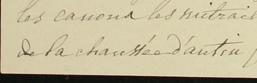 les canons les mitrail
de la chaussée d'antin